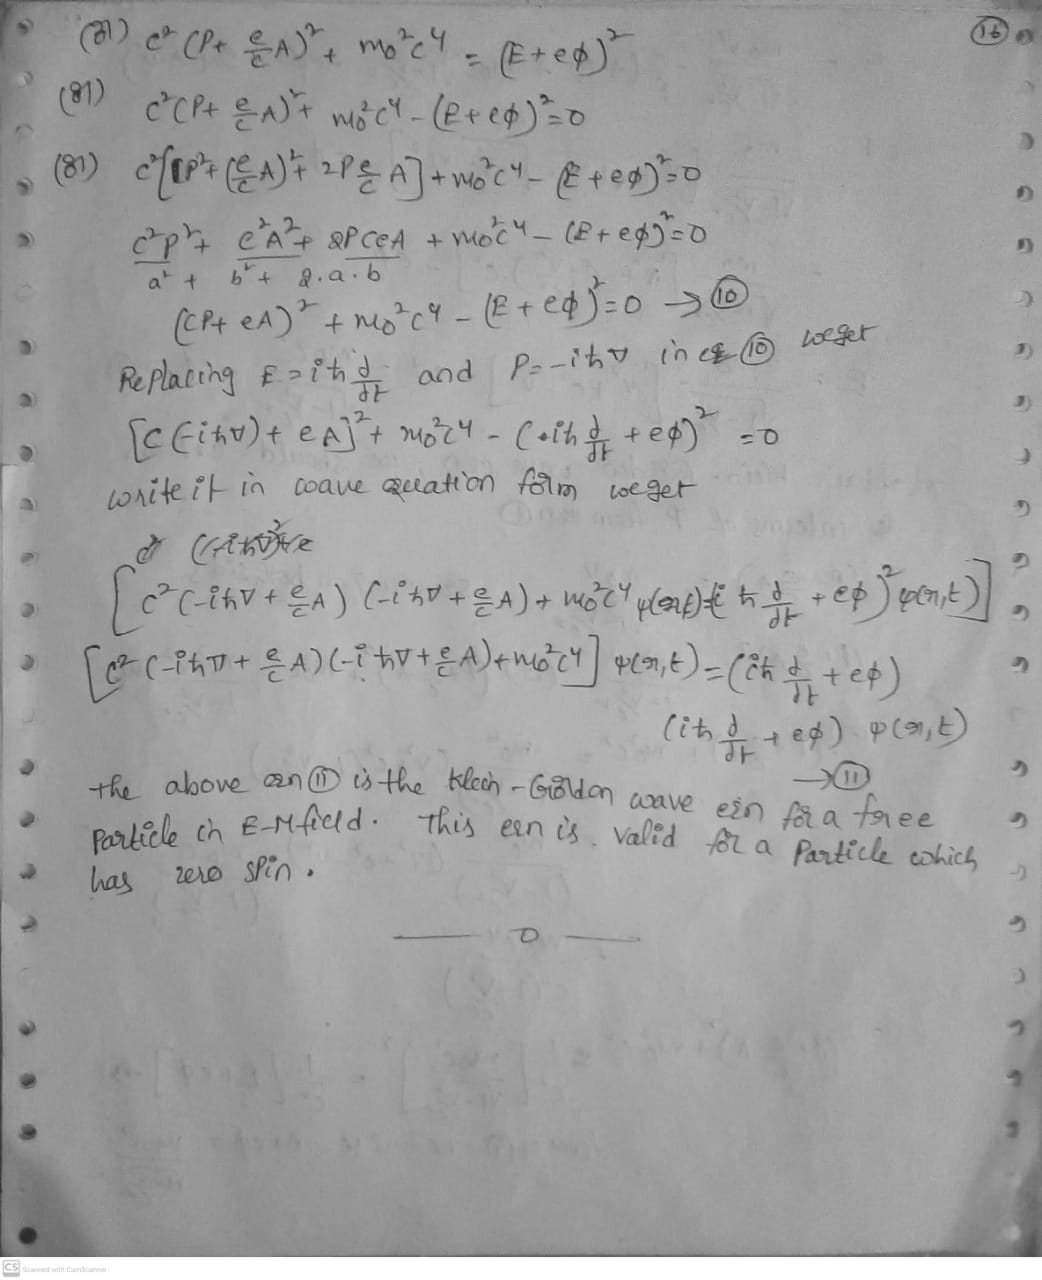 (or) c² (P + e/c A)² + m₀²c⁴ = (E + eϕ)²
16
(or) c² (P + e/c A)² + m₀²c⁴ - (E + eϕ)² = 0
(or) c² [P² + (e/c A)² + 2P e/c A] + m₀²c⁴ - (E + eϕ)² = 0
c²p² + e²A² + 2PceA + m₀²c⁴ - (E + eϕ)² = 0
a² + b² + 2.a.b
(CP + eA)² + m₀²c⁴ - (E + eϕ)² = 0 → ⑩
Replacing E = iℏ ∂/∂t and P = -iℏ∇ in eq ⑩ weget
[C (-iℏ∇) + eA]² + m₀²c⁴ - (iℏ ∂/∂t + eϕ)² = 0
write it in wave equation form weget
[c² (-iℏ∇ + e/c A) (-iℏ∇ + e/c A) + m₀²c⁴ ψ(r,t) - (iℏ ∂/∂t + eϕ)² ψ(r,t)]
[c² (-iℏ∇ + e/c A) (-iℏ∇ + e/c A) + m₀²c⁴] ψ(r,t) = (iℏ ∂/∂t + eϕ)
(iℏ ∂/∂t + eϕ) ψ(r,t)
→ ⑪
the above eqn ⑪ is the Klein - Gordon wave eqn for a free
Particle in E-M field. This eqn is valid for a Particle which
has zero spin.
— 0 —
CS Scanned with CamScanner